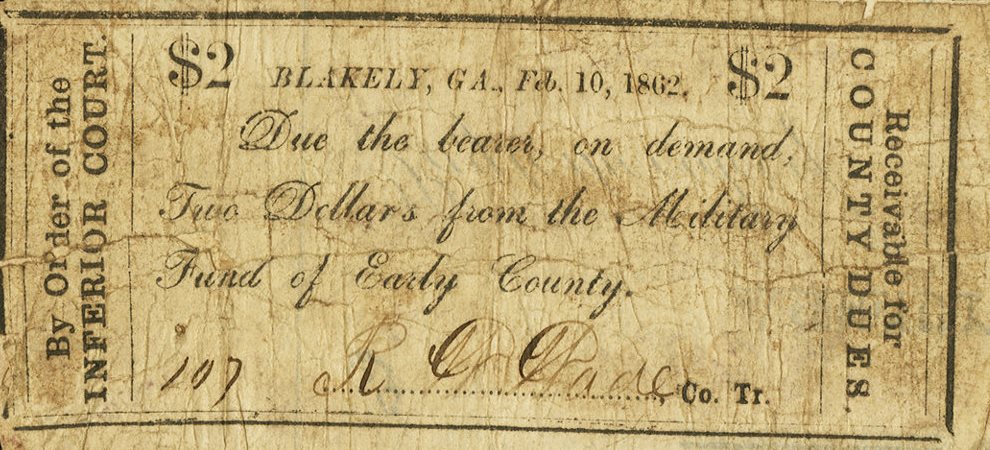 By Order of the
INFERIOR COURT.
$2 BLAKELY, GA., Feb. 10, 1862. $2
Due the bearer, on demand,
Two Dollars from the Military
Fund of Early County.
107 R Co. Tr.
Receivable for
COUNTY DUES.